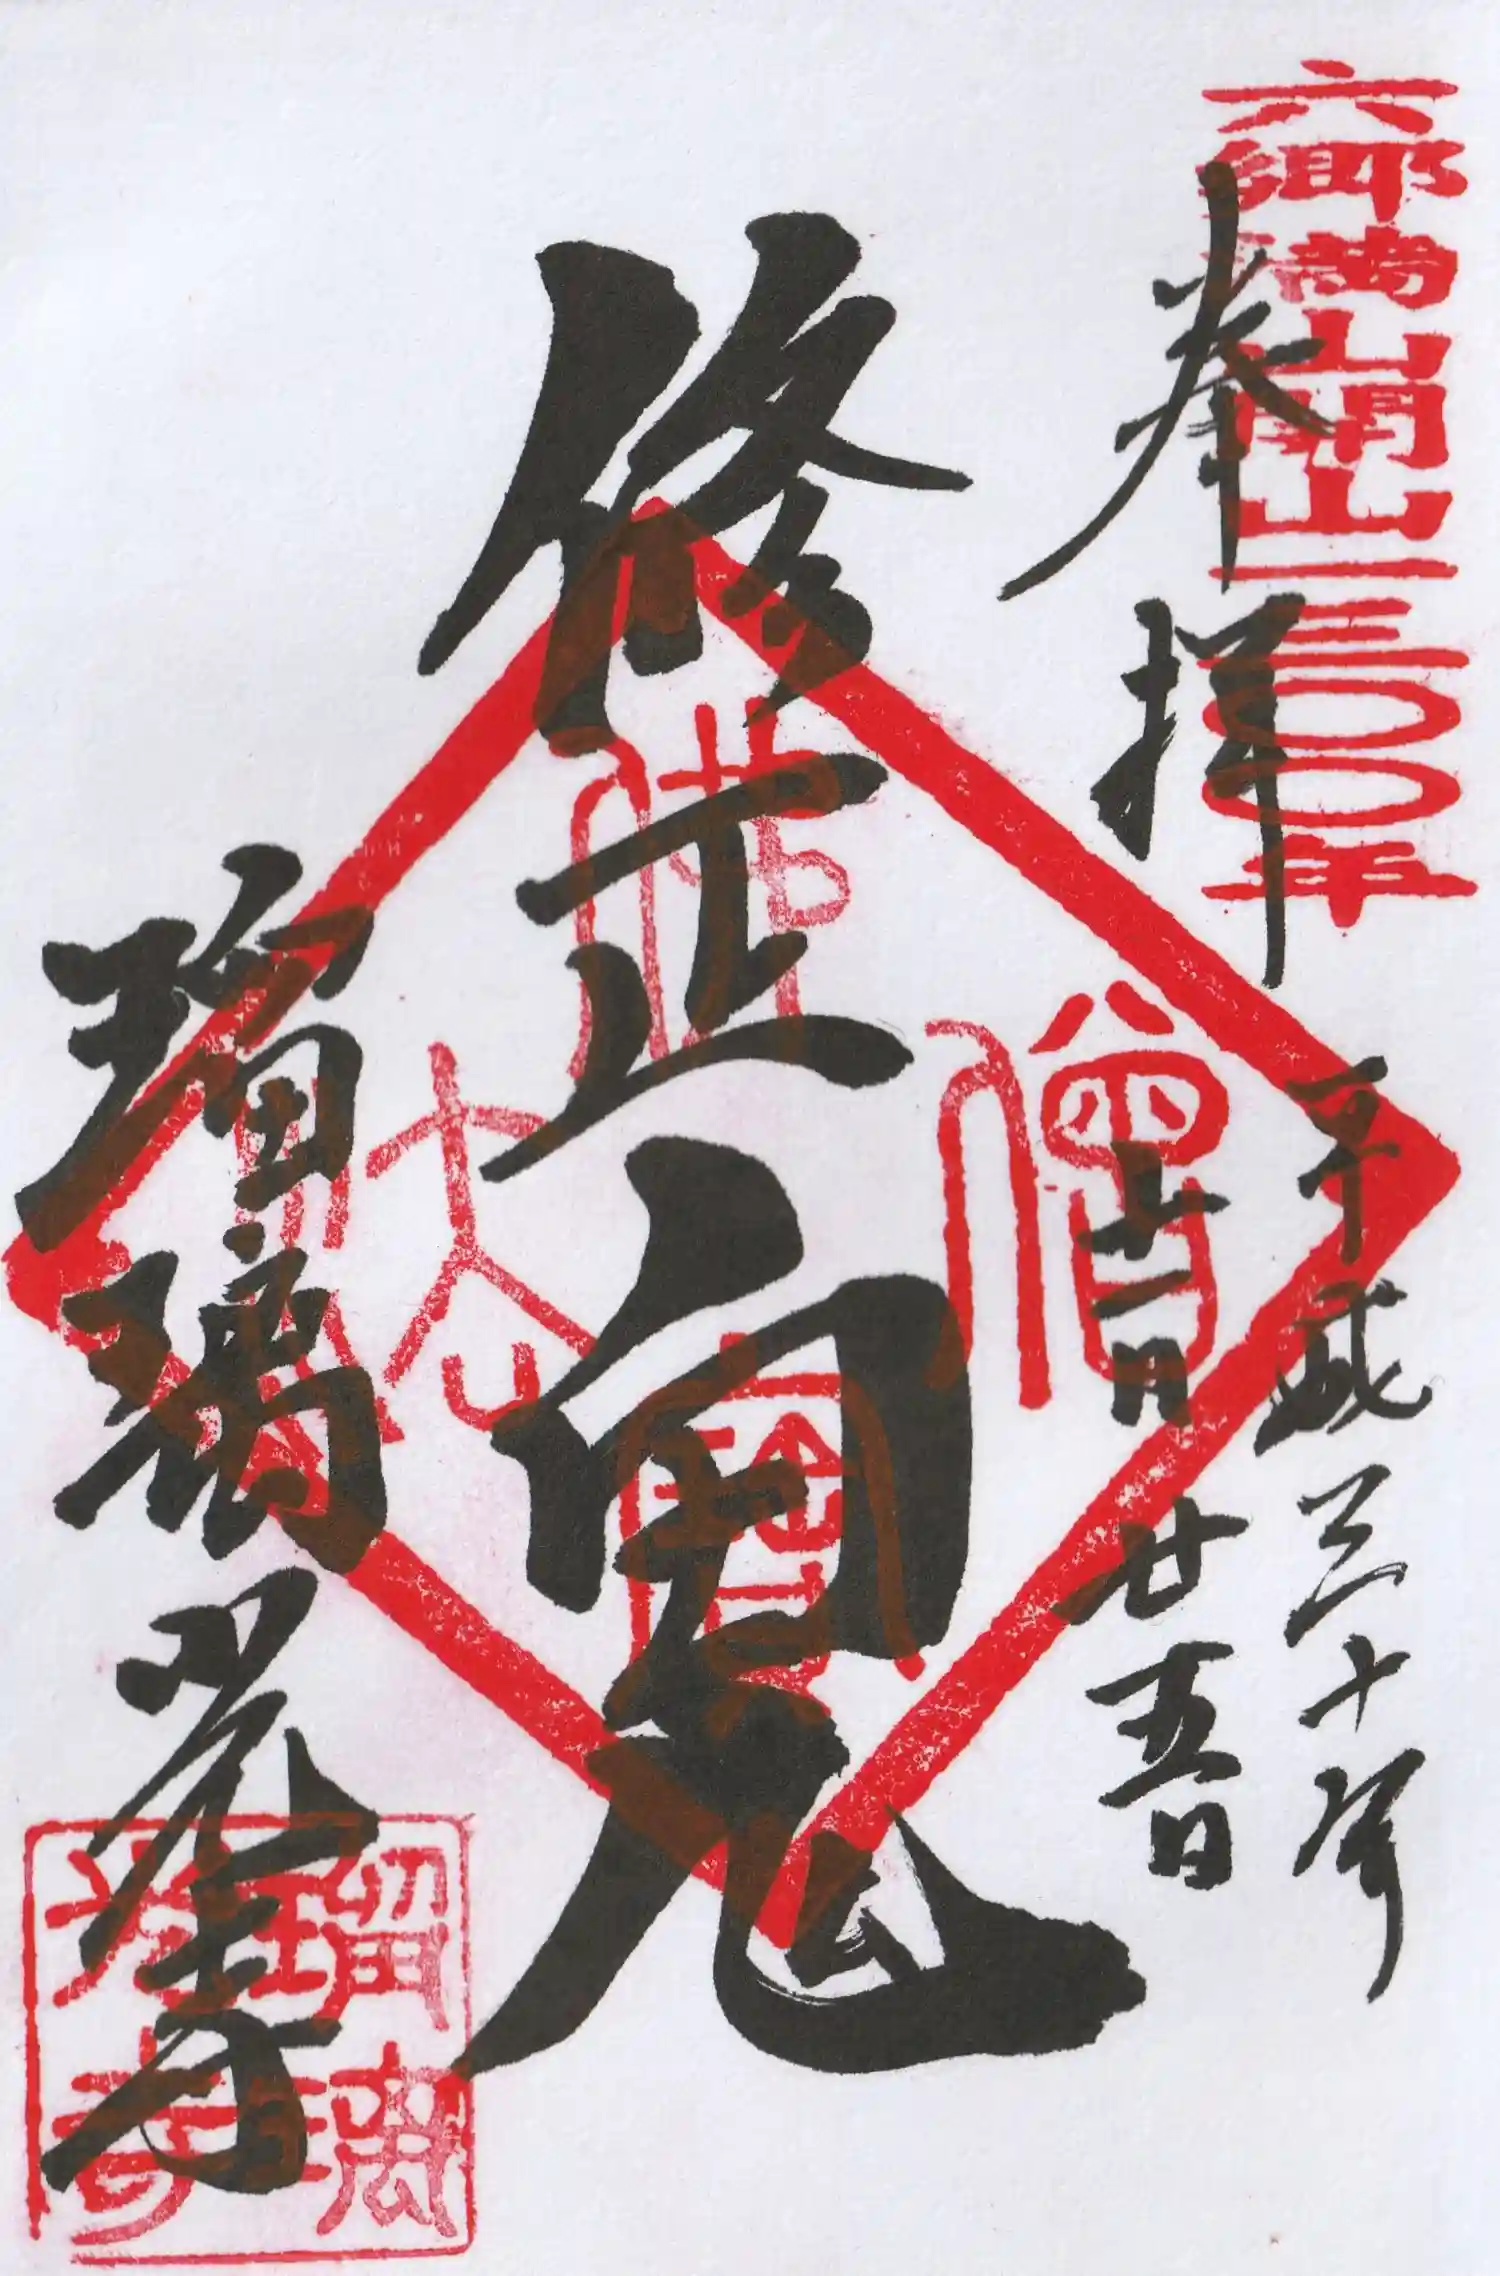 六郷満山開山一三〇〇年
奉拝
平成三十年
十二月廿五日
修正鬼
佛法僧寳
瑠璃光寺
瑠璃光寺